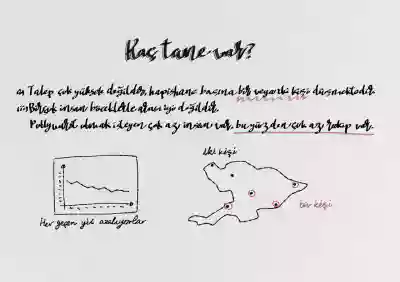 Kaç tane var?
Talep çok yüksek değildir, hapishane başına bir veya iki kişi düşmektedir.
Birçok insan böceklerle arası iyi değildir.
olmak isteyen çok az insan var, bu yüzden çok az rakip var.
iki kişi
bir kişi
Her geçen yıl azalıyorlar